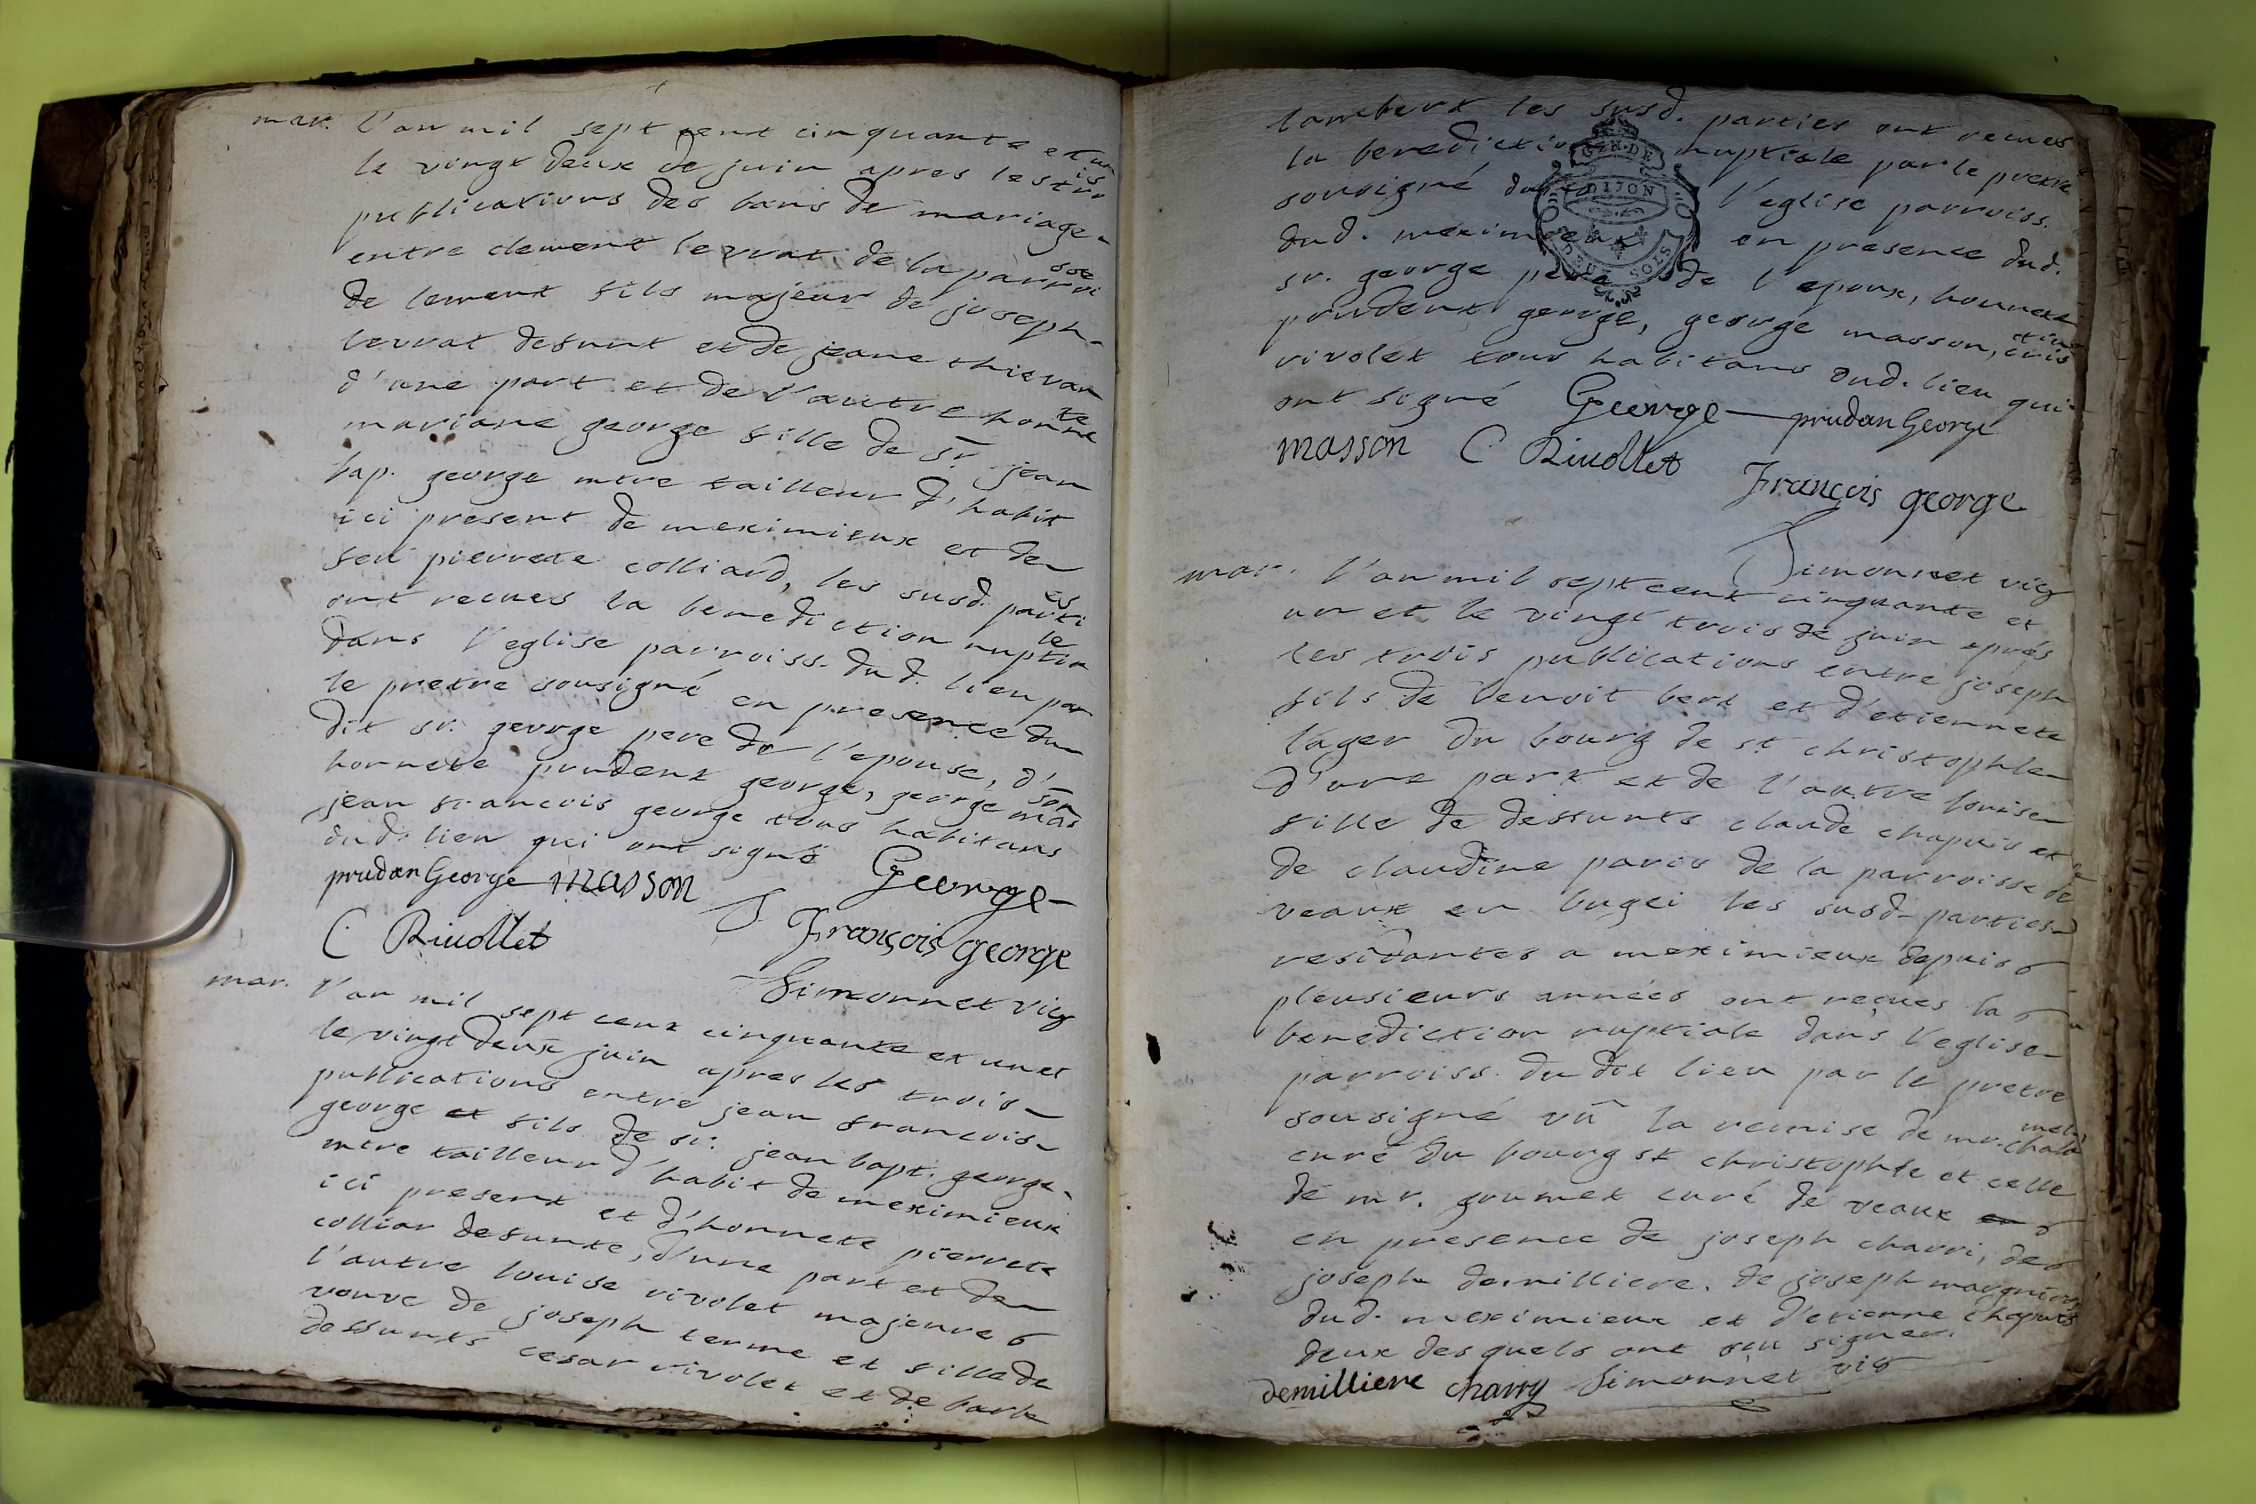 mar. l'an mil sept cent cinquante et un
le vingt deux de juin apres les trois
publications des bans de mariage
entre clement levrat de la parroisse
de lement fils majeur de joseph
levrat defunt et de jeane thievan
d'une part et de l'autre honnete
mariane george fille de sr. jean
bap. george mtre tailleur d'habit
ici present de meximieux et de
feu pierrete colliard, les susd. parties
ont recues la benediction nuptiale
dans l'eglise parroiss. dud. lieu par
le pretre sousigné en presence du
dit sr. george pere de l'epouse, d'
honnete prudent george, george masson
jean francois george tous habitans
dud. lieu qui ont signé George
prudan George masson
C Riuollet J François george
Simonnet vic
mar. l'an mil sept cent cinquante et un et
le vingt deux juin apres les trois
publications entre jean francois
george et fils de sr. jean bapt. george
mtre tailleur d'habit de meximieux
ici present et d'honnete pierrete
colliar defunte, d'une part et de
l'autre louise rivolet majeure
veuve de joseph terme et fille de
deffunts cesar rivolet et de barbe
lambert les susd. parties ont recues
la benediction nuptiale par le pretre
sousigné dans l'eglise parroiss.
dud. meximieux en presence dud.
sr. george pere de l'epoux, honnete
prudent george, george masson, cristin
rivolet tous habitans dud. lieu qui
ont signé George prudan George
masson C Riuollet
François george
Simonnet vic
GEN. DE
DIJON
DEUX SOLS
mar. l'an mil sept cent cinquante et
un et le vingt trois de juin aprés
les trois publications entre joseph
fils de benoit bert et d'etiennete
lager du bourg de st christophle
d'une part et de l'autre louise
fille de deffunts claude chapuis et
de claudine paros de la parroisse de
veaux en bugei les susd. parties
residantes a meximieux depuis
pleusieurs années ont reçues la
benediction nuptiale dans l'eglise
parroiss. du dit lieu par le pretre
sousigné vû la remise de mr. chalamel
curé du bourg st christophle et celle
de mr. goumet curé de veaux en
en presence de joseph charri, de
joseph demilliere, de joseph margnion
dud. meximieux et d'etienne chapuis
deux desquels ont sçu signer.
demilliere charry Simonnet vic